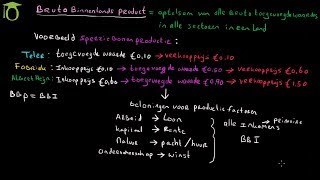 Bruto Binnenlands product = optelsom van alle bruto toegevoegde waarden,
in alle sectoren in een land
Voorbeeld Sperziebonen productie:
Teler: toegevoegde waarde €0,10 → verkoopprijs €0,10
Fabriek: Inkoopprijs €0,10 → toegevoegde waarde €0,50 → verkoopprijs €0,60
Albert Heijn: Inkoopprijs €0,60 → toegevoegde waarde €0,90 → verkoopprijs €1,50
BBP = BBI
beloningen voor productiefactoren
Arbeid → Loon
kapitaal → Rente
Natuur → pacht/huur
Ondernemerschap → winst
alle Inkomens → Primaire
BBI